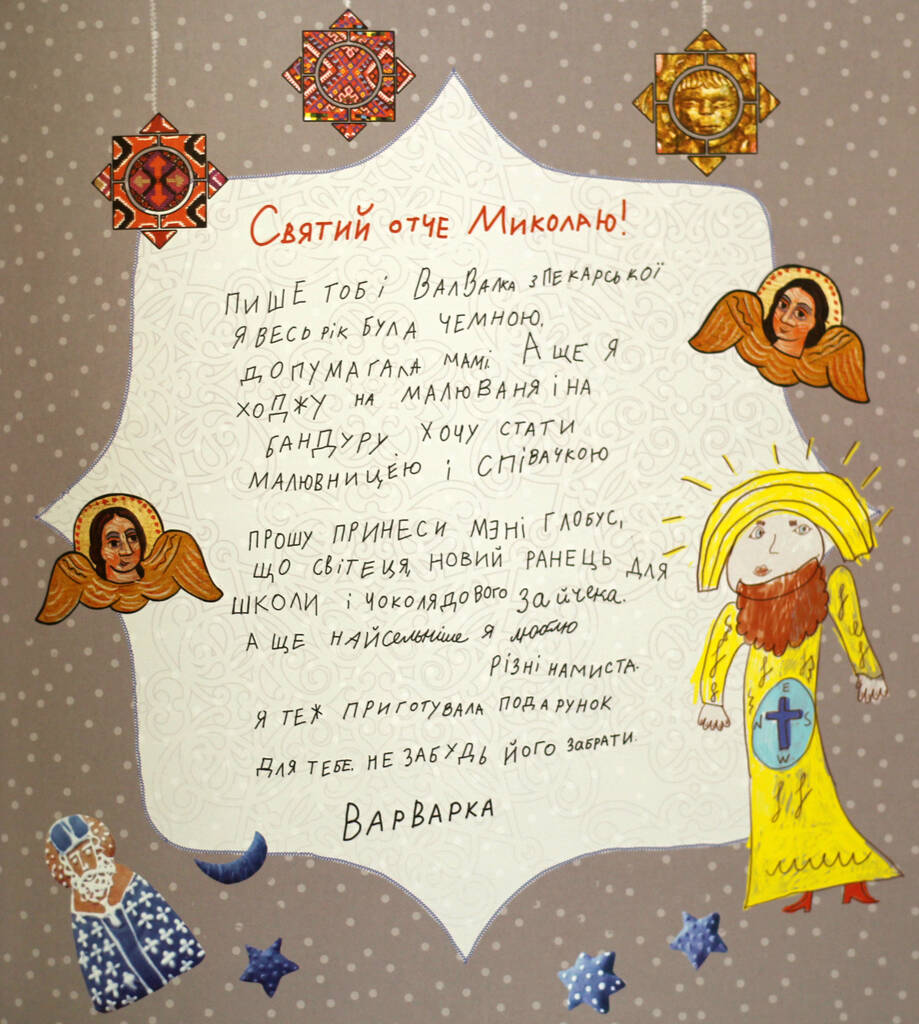 Святий отче Миколаю!
Пише тобі ВалВалка з Пекарської
Я весь рік була чемною.
Допумагала мамі. А ще я
ходжу на малюваня і на
бандуру. Хочу стати
малювницею і співачкою
Прошу принеси мэні глобус,
що світеця, новий ранець для
школи і чоколядового зайчека.
А ще найсельніше я люблю
різні намиста.
Я теж приготувала подарунок
для тебе. Не забудь його забрати.
Варварка
E
N S
W